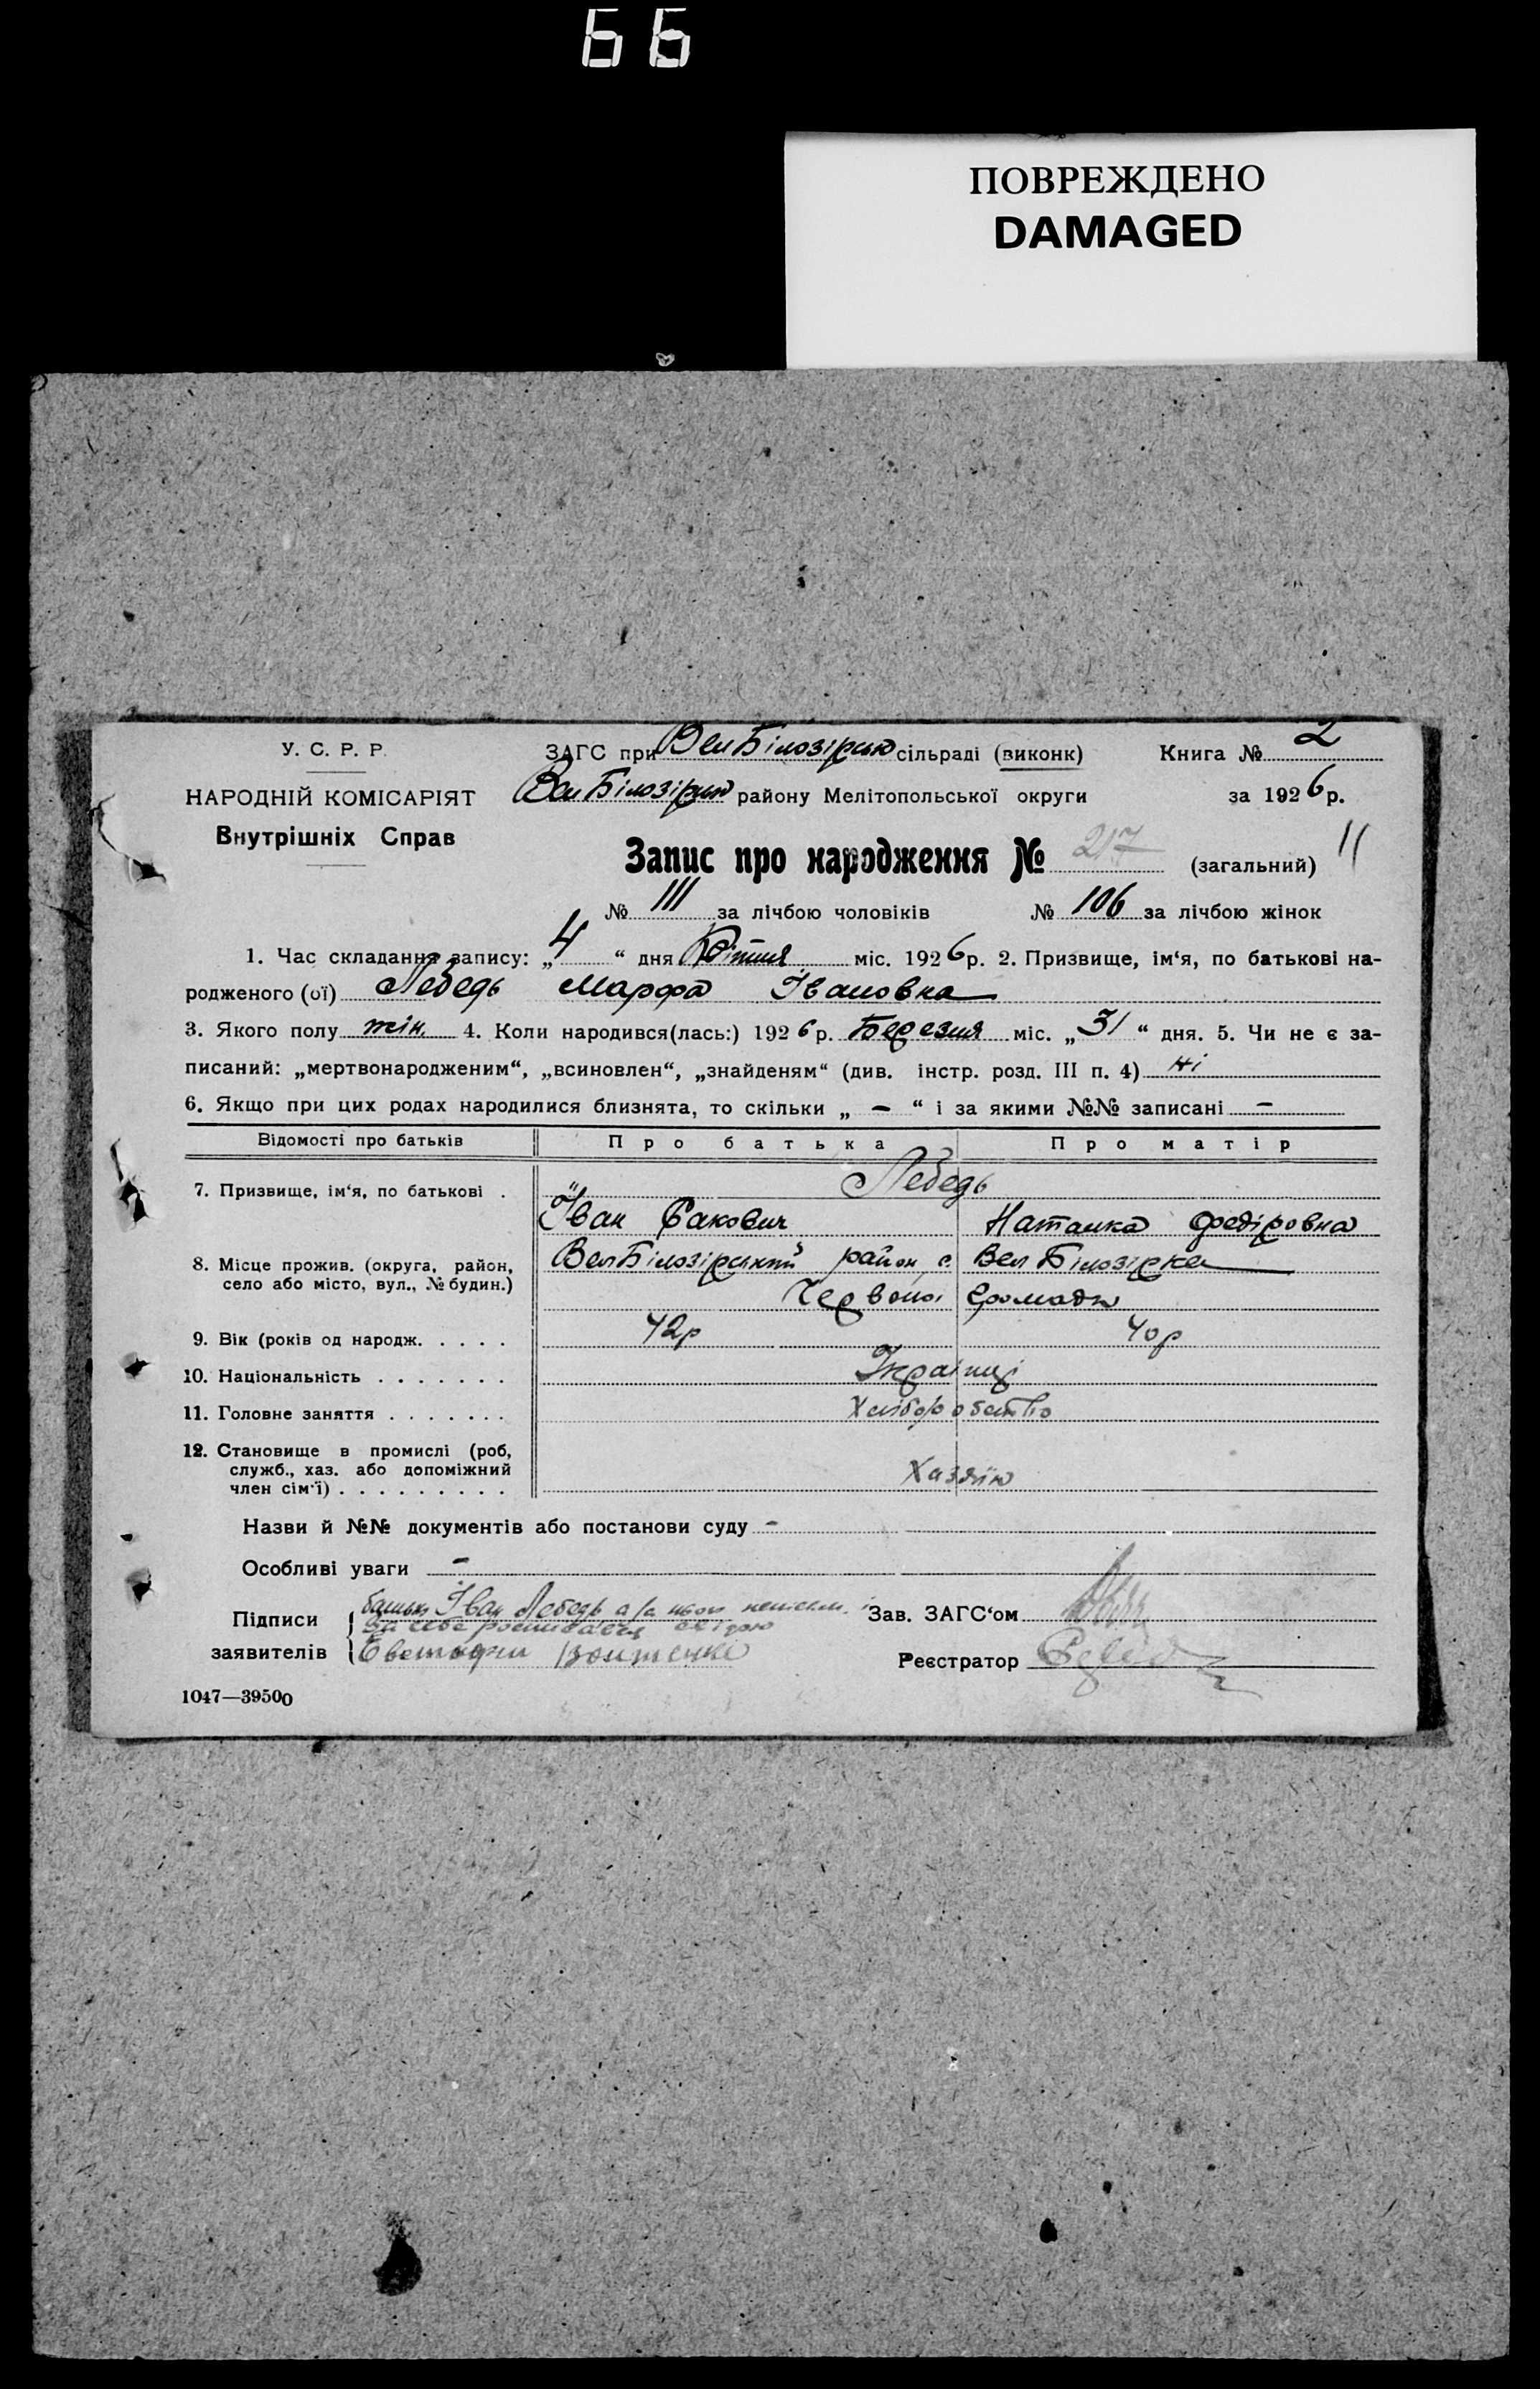 66
ПОВРЕЖДЕНО
DAMAGED
У. С. Р. Р.
НАРОДНІЙ КОМІСАРІЯТ
Внутрішніх Справ
ЗАГС при ВелБілозірськ сільраді (виконк) Книга № 2
ВелБілозірськ району Мелітопольської округи за 1926 р.
Запис про народження № 217 (загальний) 11
№ 111 за лічбою чоловіків № 106 за лічбою жінок
1. Час складання запису: „4“ дня Квітня міс. 1926 р. 2. Призвище, ім‘я, по батькові на-
родженого (ої) Лебедь Марфа Івановна
3. Якого полу жін. 4. Коли народився(лась:) 1926 р. Березня міс. „31“ дня. 5. Чи не є за-
писаний: „мертвонародженим“, „всиновлен“, „знайденям“ (див. інстр. розд. III п. 4) ні
6. Якщо при цих родах народилися близнята, то скільки „ — “ і за якими №№ записані —
Відомості про батьків Про батька Про матір
7. Призвище, ім‘я, по батькові . Лебедь
Іван Наталка Федіровна
8. Місце прожив. (округа, район,
село або місто, вул., № будин.)
ВелБілозірський район с. Вел Білозірка
Червоної Громади
9. Вік (років од народж. . . . . 42р 40р
10. Національність . . . . . . . Українці
11. Головне заняття . . . . . . . Хліборобство
12. Становище в промислі (роб,
служб., хаз. або допоміжний
член сім‘ї) . . . . . . . . . Хазяїн
Назви й №№ документів або постанови суду -
Особливі уваги -
Підписи
заявителів
батько Іван Лебедь а за нього неписьм.
Зав. ЗАГС‘ом
Реєстратор
1047—39500